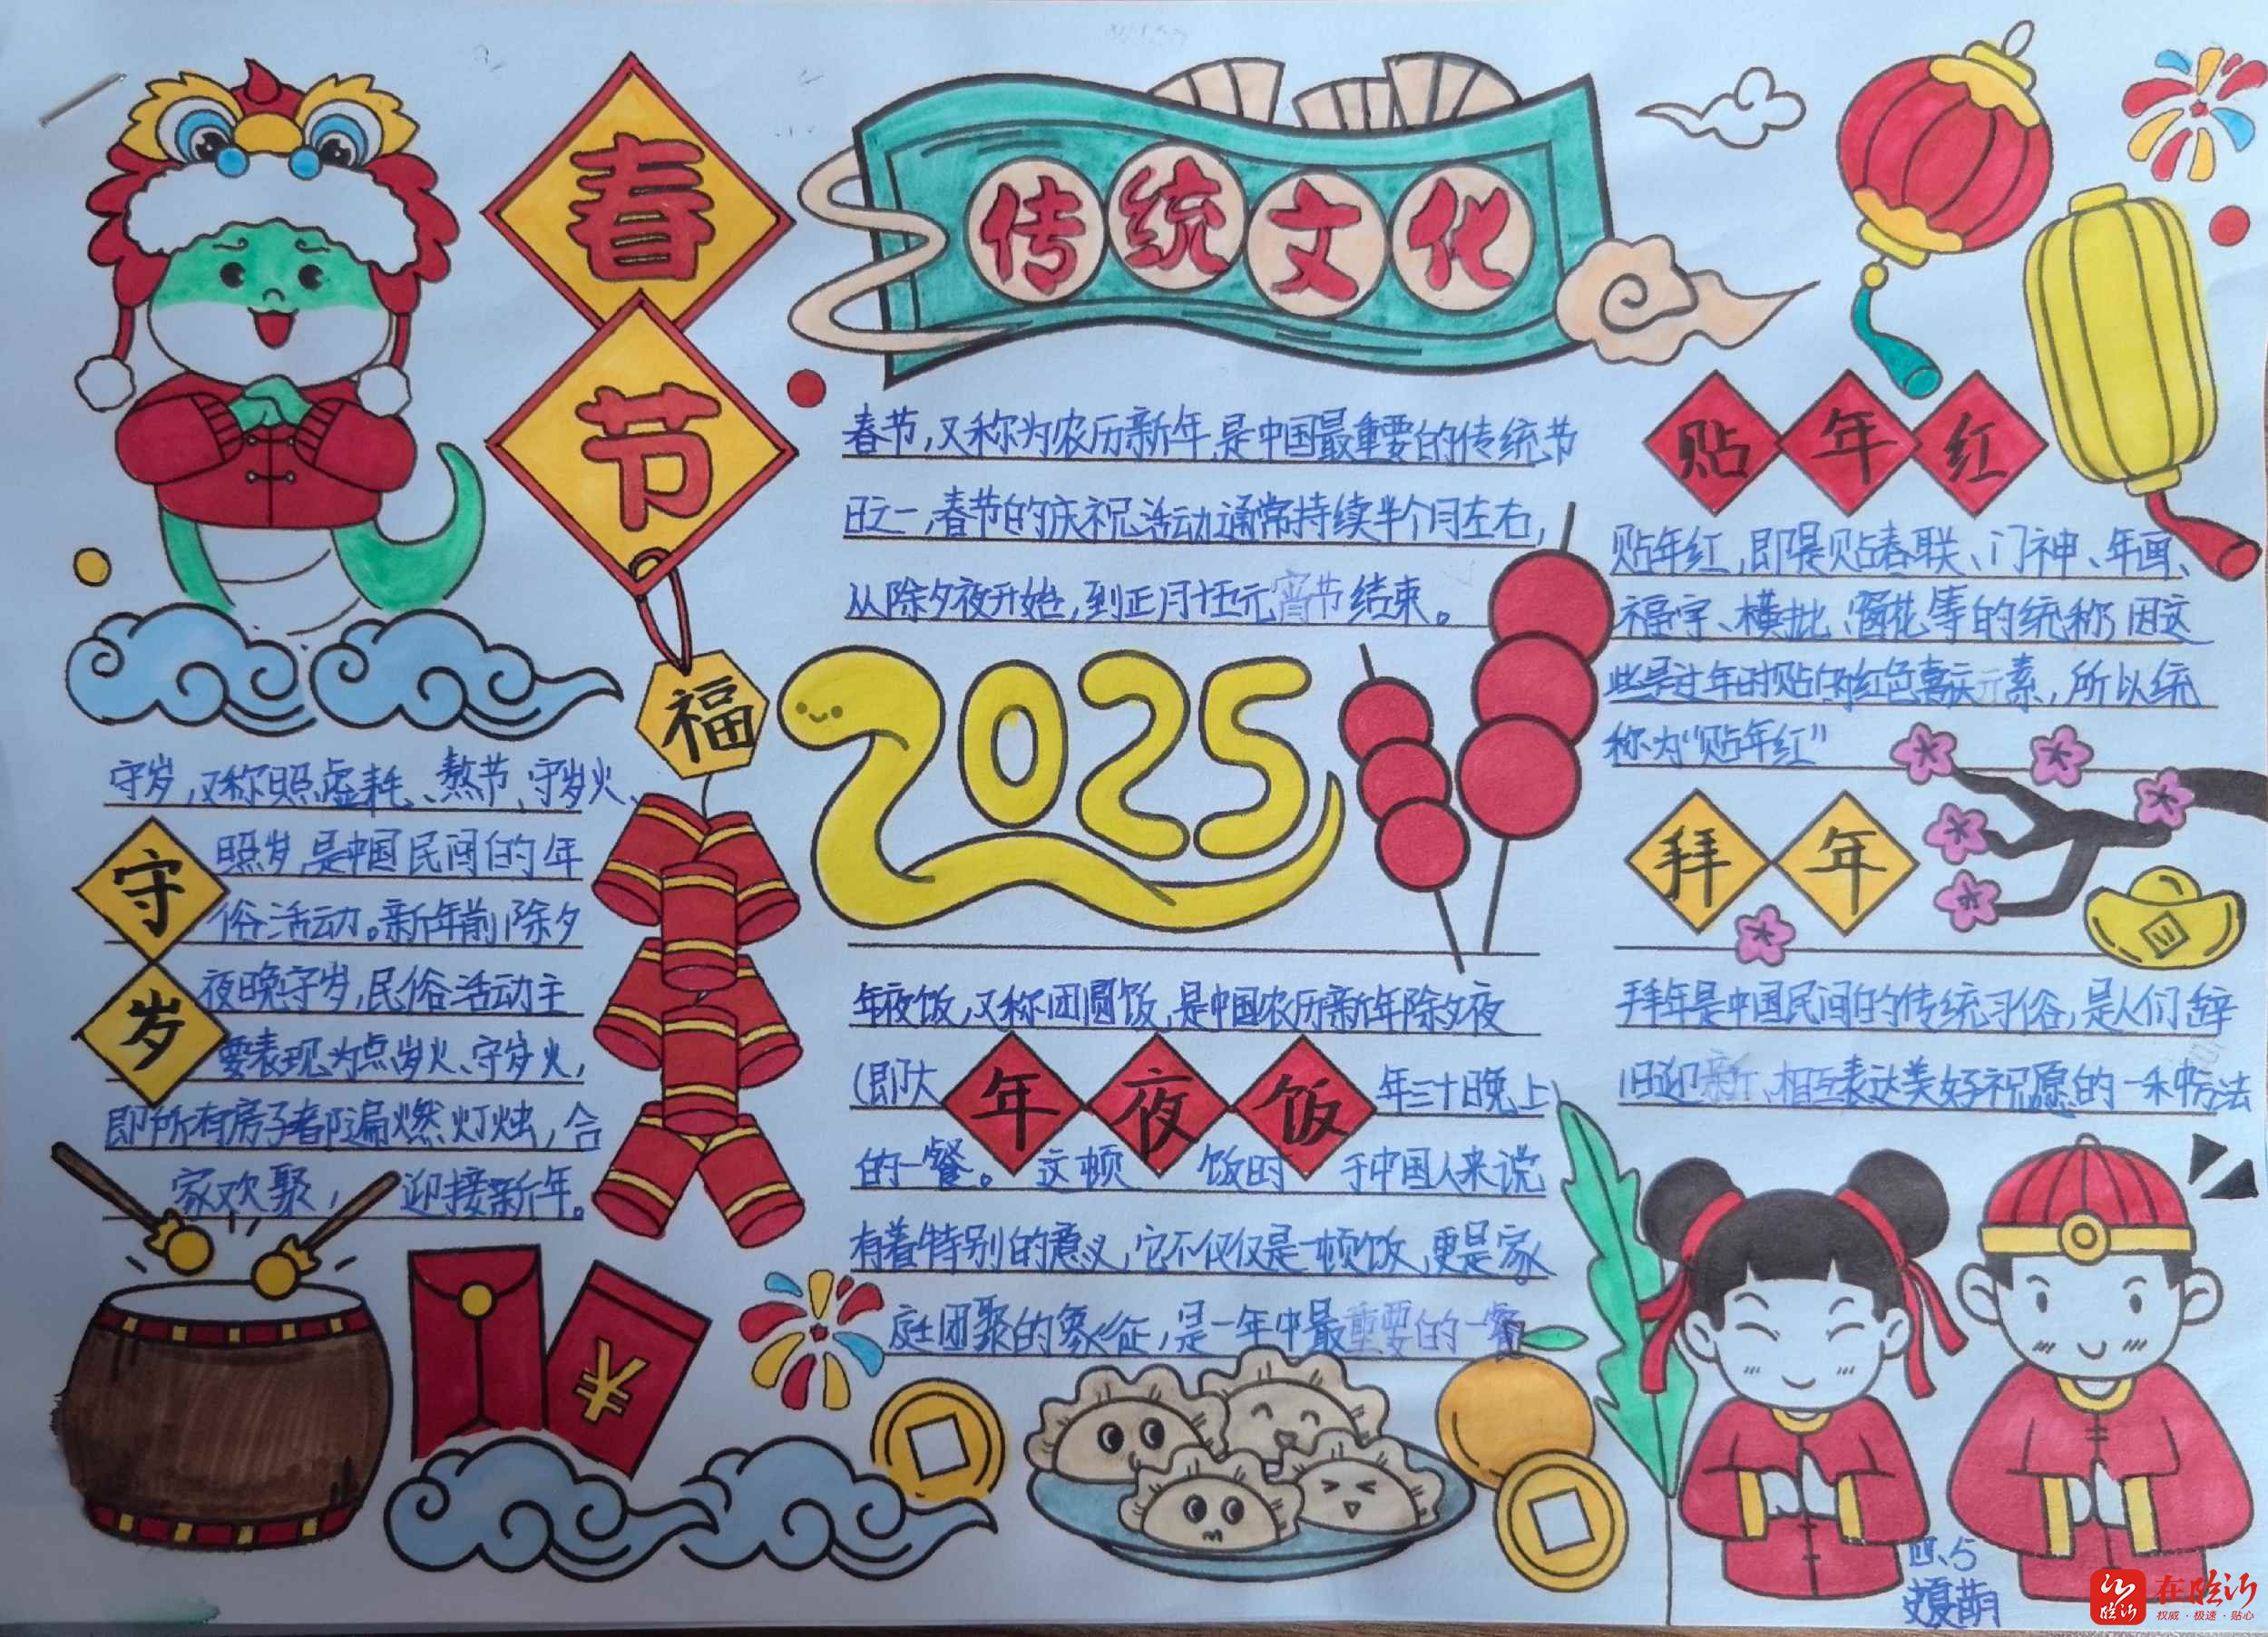 春节
传统文化
春节,又称为农历新年,是中国最重要的传统节
日之一,春节的庆祝活动通常持续半个月左右,
从除夕夜开始,到正月十五元宵节结束。
福
2025
守岁
守岁,又称照虚耗、熬节、守岁火、
照岁,是中国民间的年
俗活动。新年前除夕
夜晚守岁,民俗活动主
要表现为点岁火、守岁火,
即所有房子都遍燃灯烛,合
家欢聚,迎接新年。
¥
年夜饭
年夜饭,又称团圆饭,是中国农历新年除夕夜
(即大年三十日晚上)
的一餐。这顿饭时于中国人来说
有着特别的意义,它不仅仅是一顿饭,更是家
庭团聚的象征,是一年中最重要的一餐
贴年红
贴年红,即是贴春联、门神、年画、
福字、横批、窗花等的统称,因这
些是过年时贴的红色喜庆元素,所以统
称为“贴年红”
拜年
拜年是中国民间的传统习俗,是人们辞
旧迎新、相互表达美好祝愿的一种方法
四、5
夏萌
临沂
在临沂
权威·极速·贴心